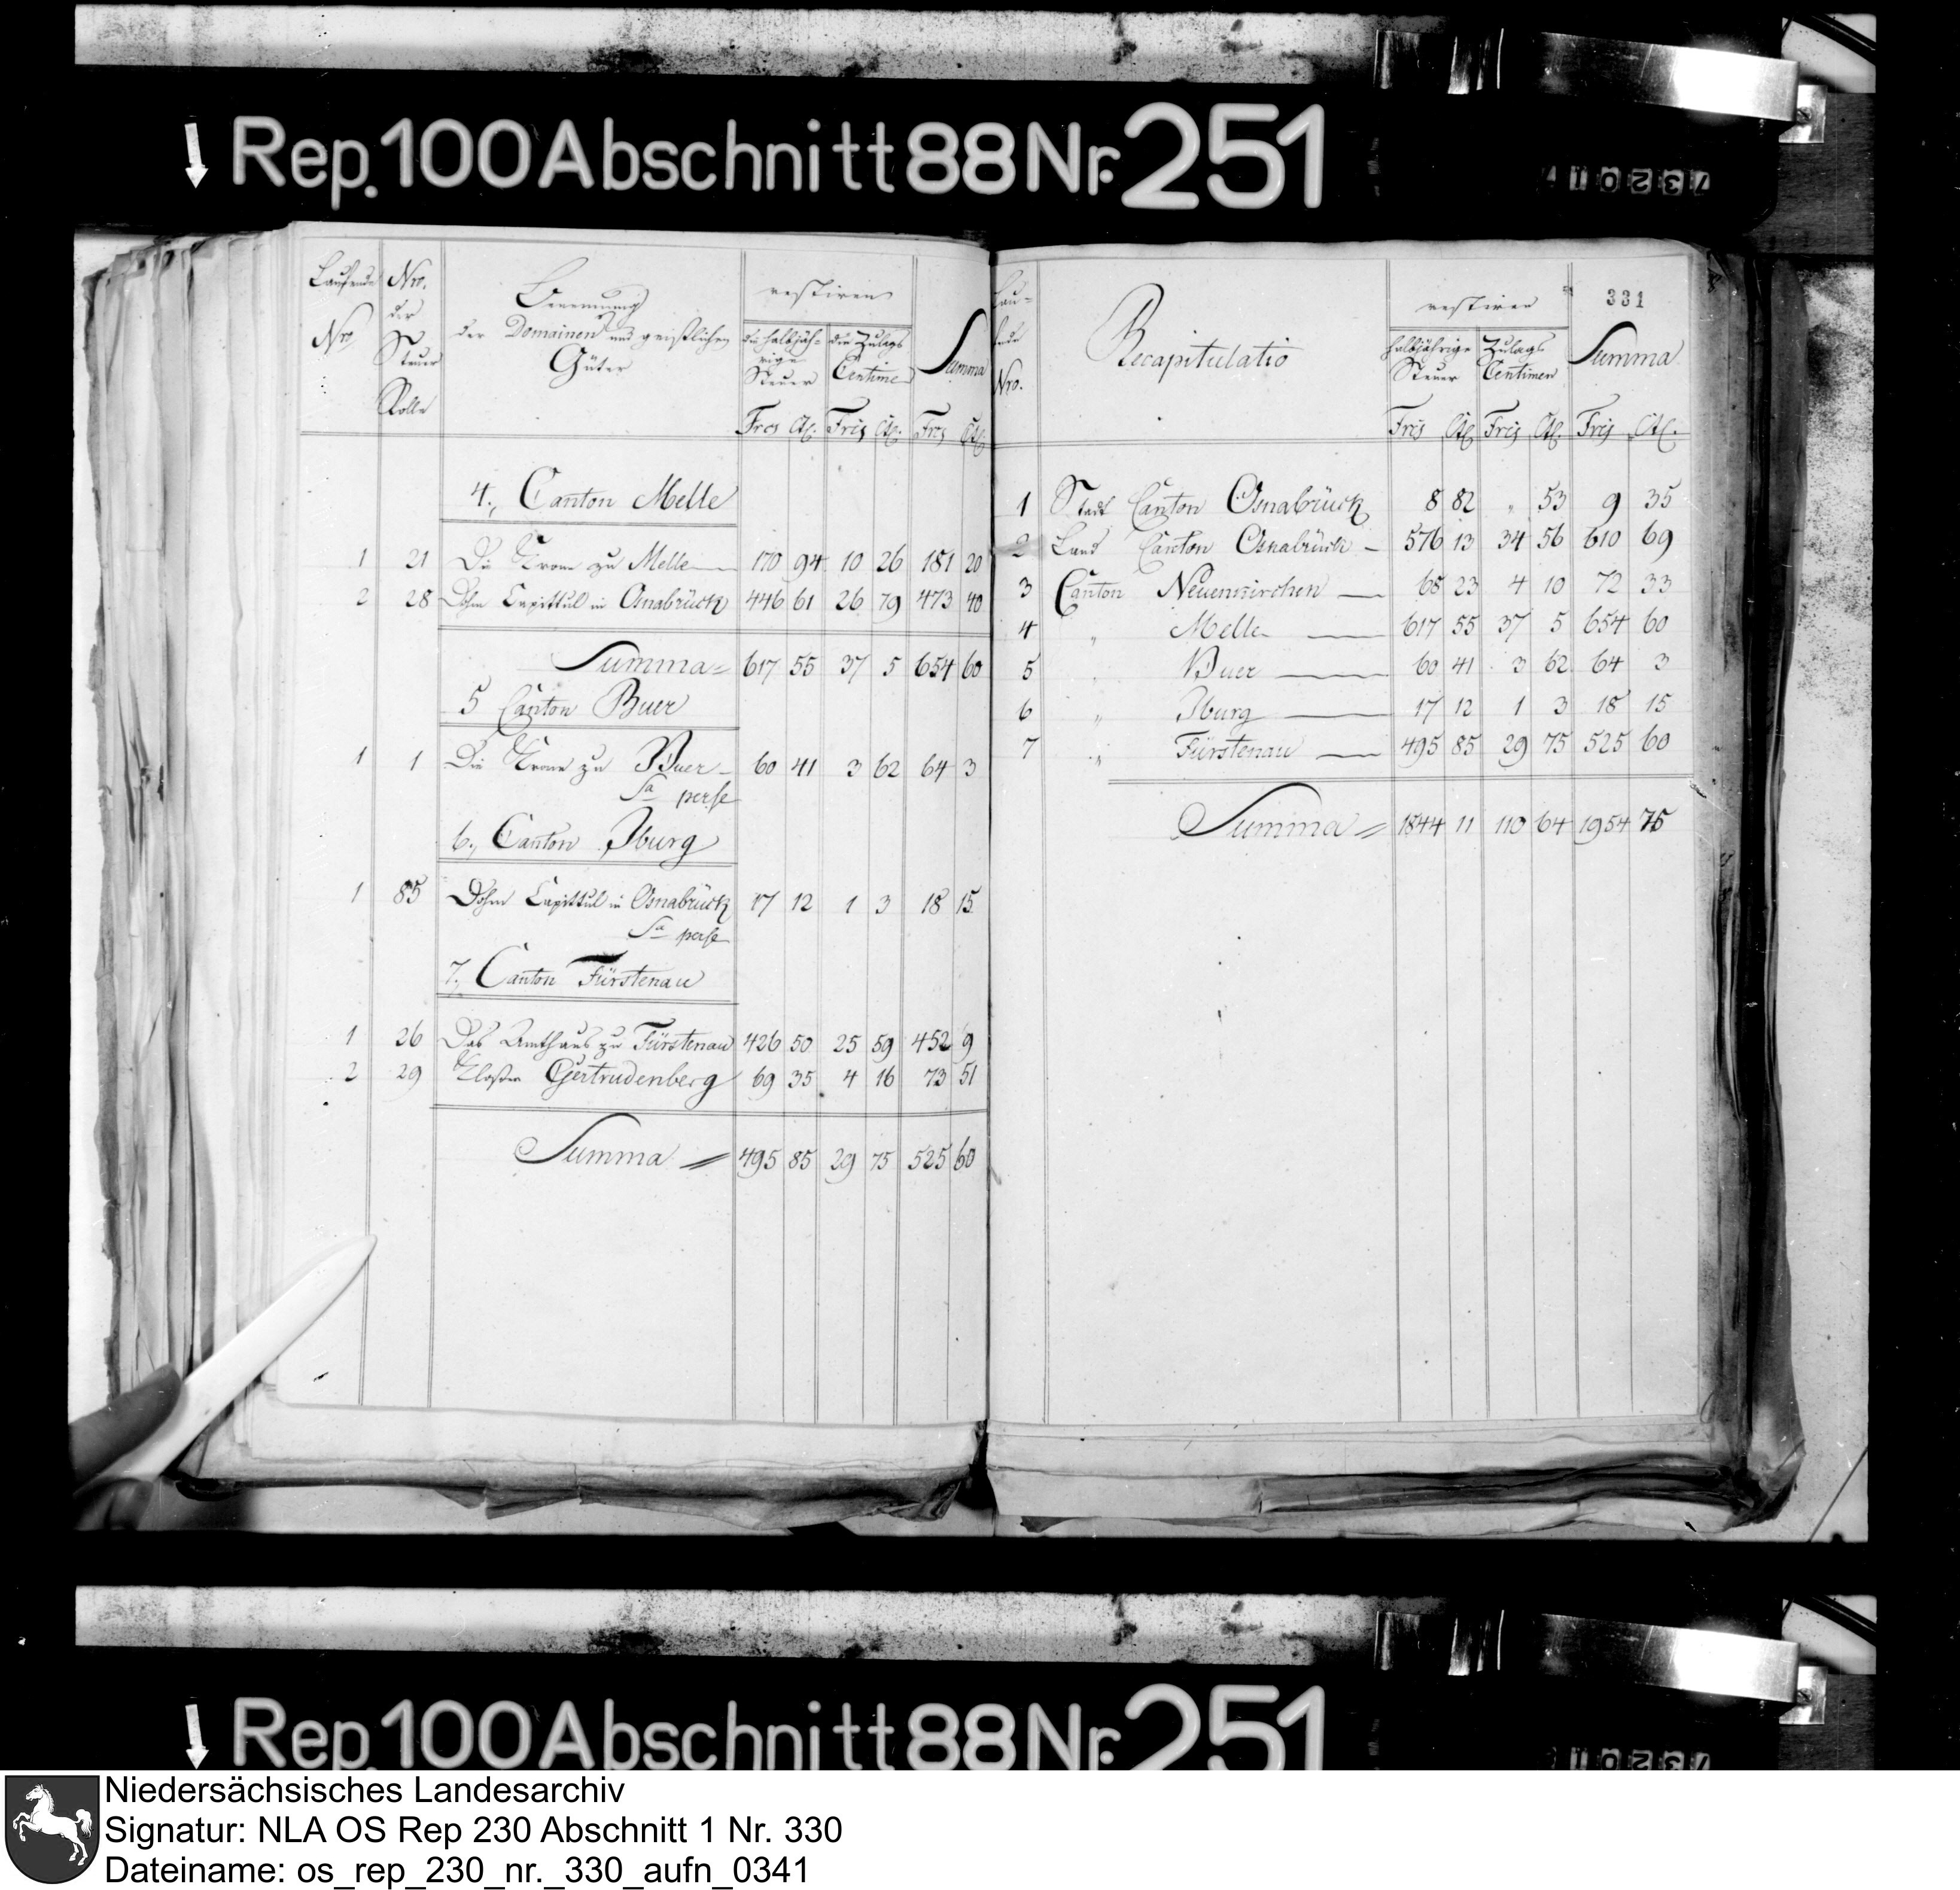 Rep. 100 Abschnitt 88 Nr. 251
Laufende Nro
Nro. der Steuer Rolle
Benennung
der Domainen und geistlichen
Güter
restiren
die halbjährige Steuer
die Zulags Centimen
Summa
Frcs Ct. Frcs Ct. Frcs Ct.
4., Canton Melle
1 21 Die Krone zu Melle 170 94 10 26 181 20
2 28 Dohm Capittul in Osnabrück 446 61 26 79 473 40
Summa 617 55 37 5 654 60
5 Canton Buer
1 1 Die Krone zu Buer 60 41 3 62 64 3
Sa perse
6., Canton Iburg
1 85 Dohm Capittul in Osnabrück 17 12 1 3 18 15
Sa perse
7., Canton Fürstenau
1 26 Das Amthaus zu Fürstenau 426 50 25 59 452 9
2 29 Kloster Gertrudenberg 69 35 4 16 73 51
Summa 495 85 29 75 525 60
331
Laufende Nro.
Recapitulatio
restiren
halbjährige Steuer
Zulags Centimen
Summa
Frcs Ct. Frcs Ct. Frcs Ct.
1 Stadt Canton Osnabrück 8 82 " 53 9 35
2 Land Canton Osnabrück 576 13 34 56 610 69
3 Canton Neuenkirchen 68 23 4 10 72 33
4 " Melle 617 55 37 5 654 60
5 " Buer 60 41 3 62 64 3
6 " Iburg 17 12 1 3 18 15
7 " Fürstenau 495 85 29 75 525 60
Summa 1844 11 110 64 1954 75
Rep. 100 Abschnitt 88 Nr. 251
Niedersächsisches Landesarchiv
Signatur: NLA OS Rep 230 Abschnitt 1 Nr. 330
Dateiname: os_rep_230_nr._330_aufn_0341